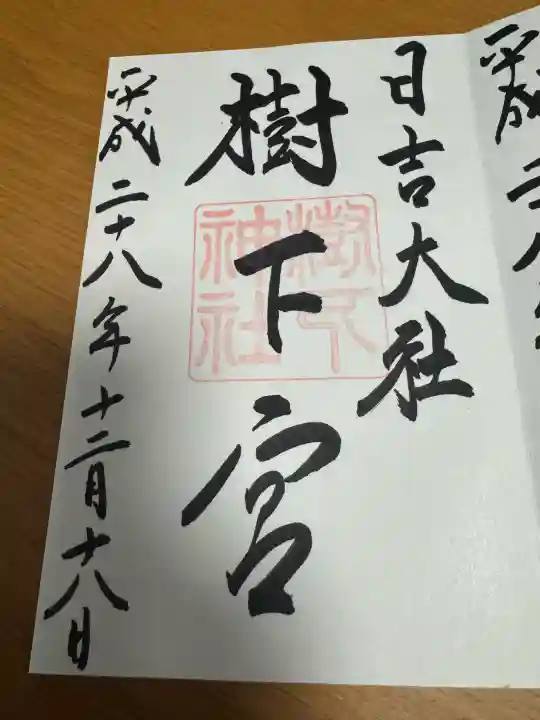 平成二
日吉大社
樹下宮
樹下神社
平成二十八年十二月十八日